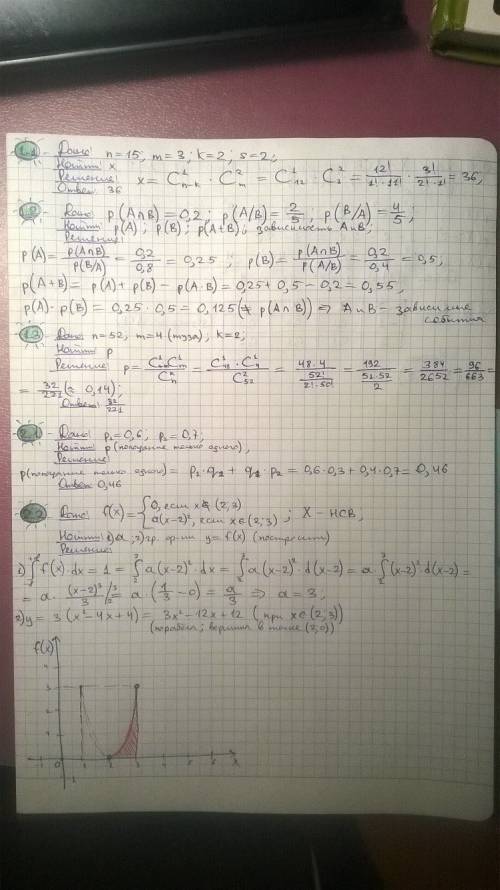 1.1 - Дано: n=15; m=3; k=2; s=2;
Найти: x
Решение: x = C¹ₙ₋ₖ · C²ₘ = C¹₁₂ · C²₃ = 12!/(1!·11!) · 3!/(2!·1!) = 36;
Ответ 36
1.2 - Дано: p(A∩B)=0,2; p(A/B)=2/5; p(B/A)=4/5;
Найти: p(A); p(B); p(A+B); зависимость A и B;
Решение:
p(A)= p(A∩B)/p(B/A) = 0,2/0,8 = 0,25; p(B)= p(A∩B)/p(A/B) = 0,2/0,4 = 0,5;
p(A+B)= p(A)+p(B)-p(A·B)=0,25+0,5-0,2=0,55;
p(A)·p(B)=0,25·0,5=0,125(≠p(A∩B)) ⇒ A и B - зависимые
события
1.3 Дано: n=52, m=4(туза), k=2;
Найти: p
Решение: p= = C¹₄₈·C¹₄/C²₅₂ = 48·4/(52!/(2!·50!)) = 192/(51·52/2) = 384/2652 = 96/663 =
= 32/221 (≈0,14);
Ответ: 32/221
2.1 - Дано: p₁=0,6; p₂=0,7;
Найти: p(попадание только одного);
Решение:
p(попадание только одного)= p₁·q₂ + q₁·p₂ = 0,6·0,3+0,4·0,7=0,46
Ответ 0,46
2.2 - Дано: f(x)={0, если x∉(2;3) a(x-2)², если x∈(2;3); X-НСВ;
Найти: 1) a; 2) гр. ф-ии y=f(x) (построить)
Решение:
1) ∫f(x)·dx=1= ∫a(x-2)²·dx= ∫a(x-2)²·d(x-2)= a·∫(x-2)²·d(x-2)=
= a·(x-2)³/3 |³₂ = a(1/3-0)= a/3 ⇒ a=3;
2) y=3(x²-4x+4)= 3x²-12x+12 (при x∈(2;3))
(парабола; вершина в точке (2;0))
f(x)
x